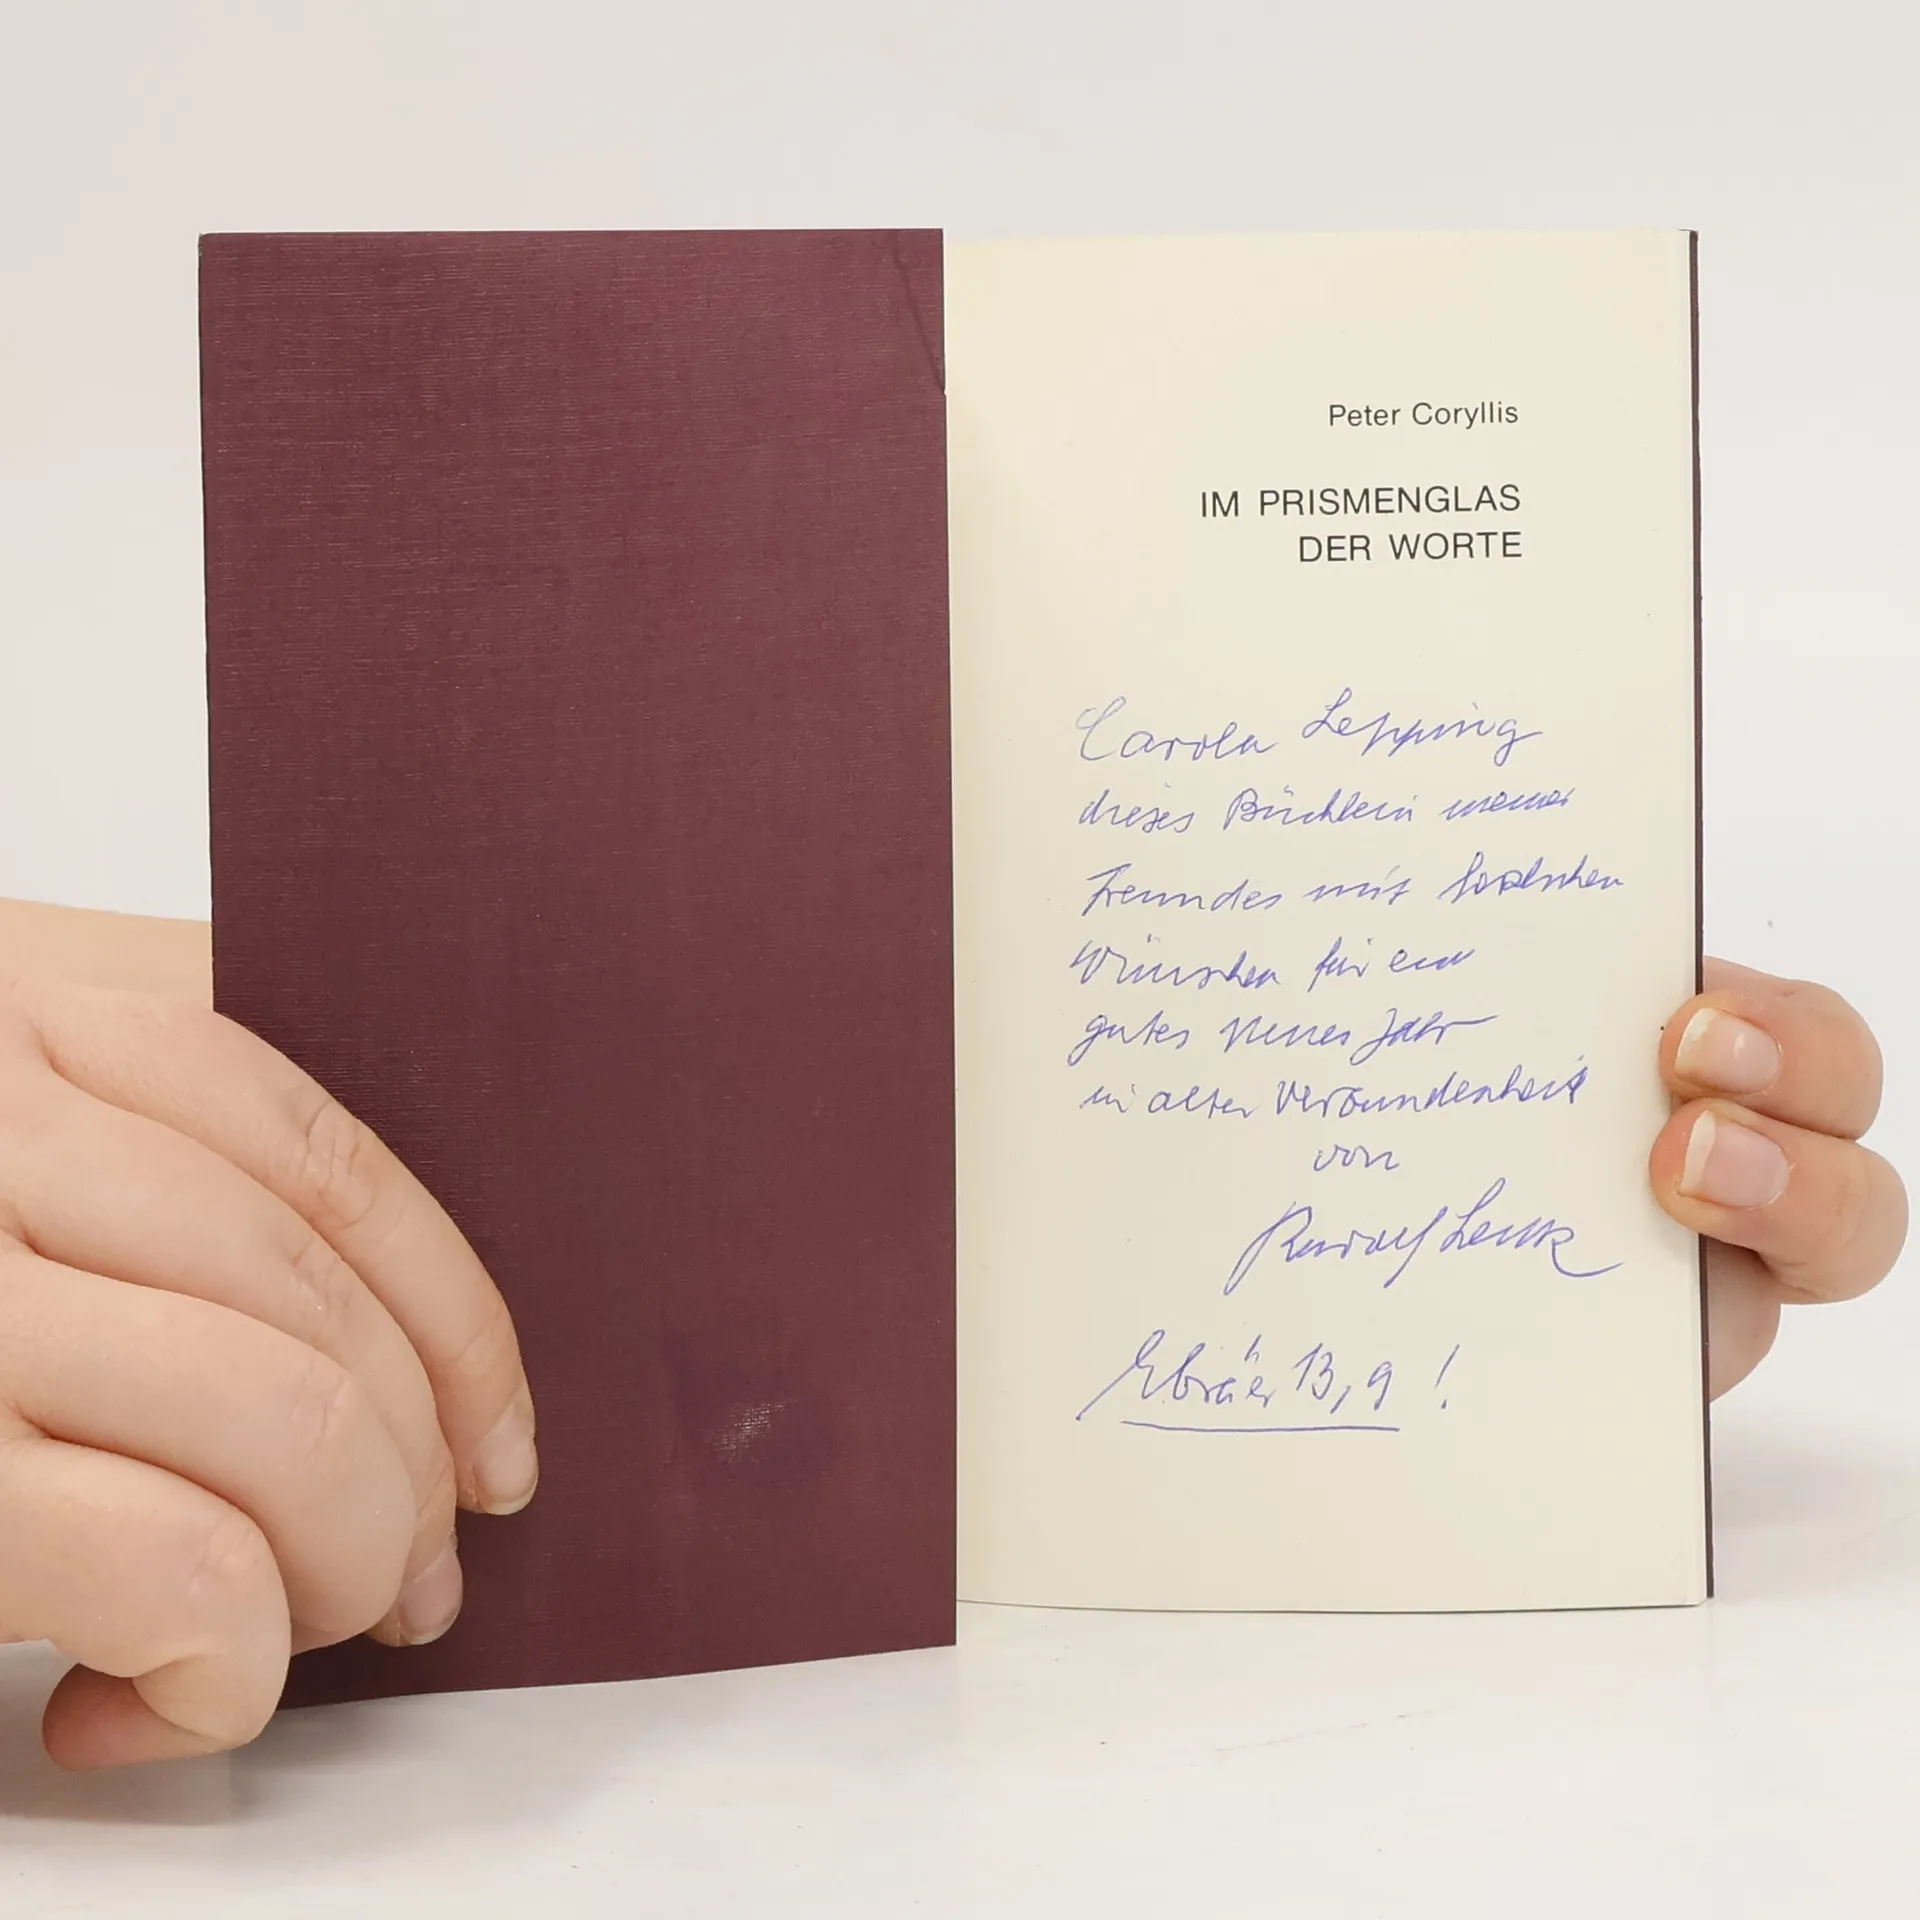 Peter Coryllis
IM PRISMENGLAS
DER WORTE
Carola Lepping
dieses Büchlein meines
Freundes mit herzlichen
Wünschen für ein
gutes Neues Jahr
in alter Verbundenheit
von
Rudolf Lenk
Ebräer 13,9 !